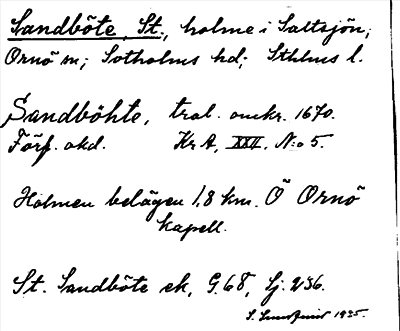 Sandböte, St., holme i Saltsjön;
Ornö sn; Sotholms hd; Sthlms l.
Sandböhte, trol. omkr. 1670.
Förf. okd. Kr A, XXII, N:o 5.
Holmen belägen 1,8 km. Ö Ornö
kapell.
St. Sandböte ek, G. 68, Sj. 236.
1935.